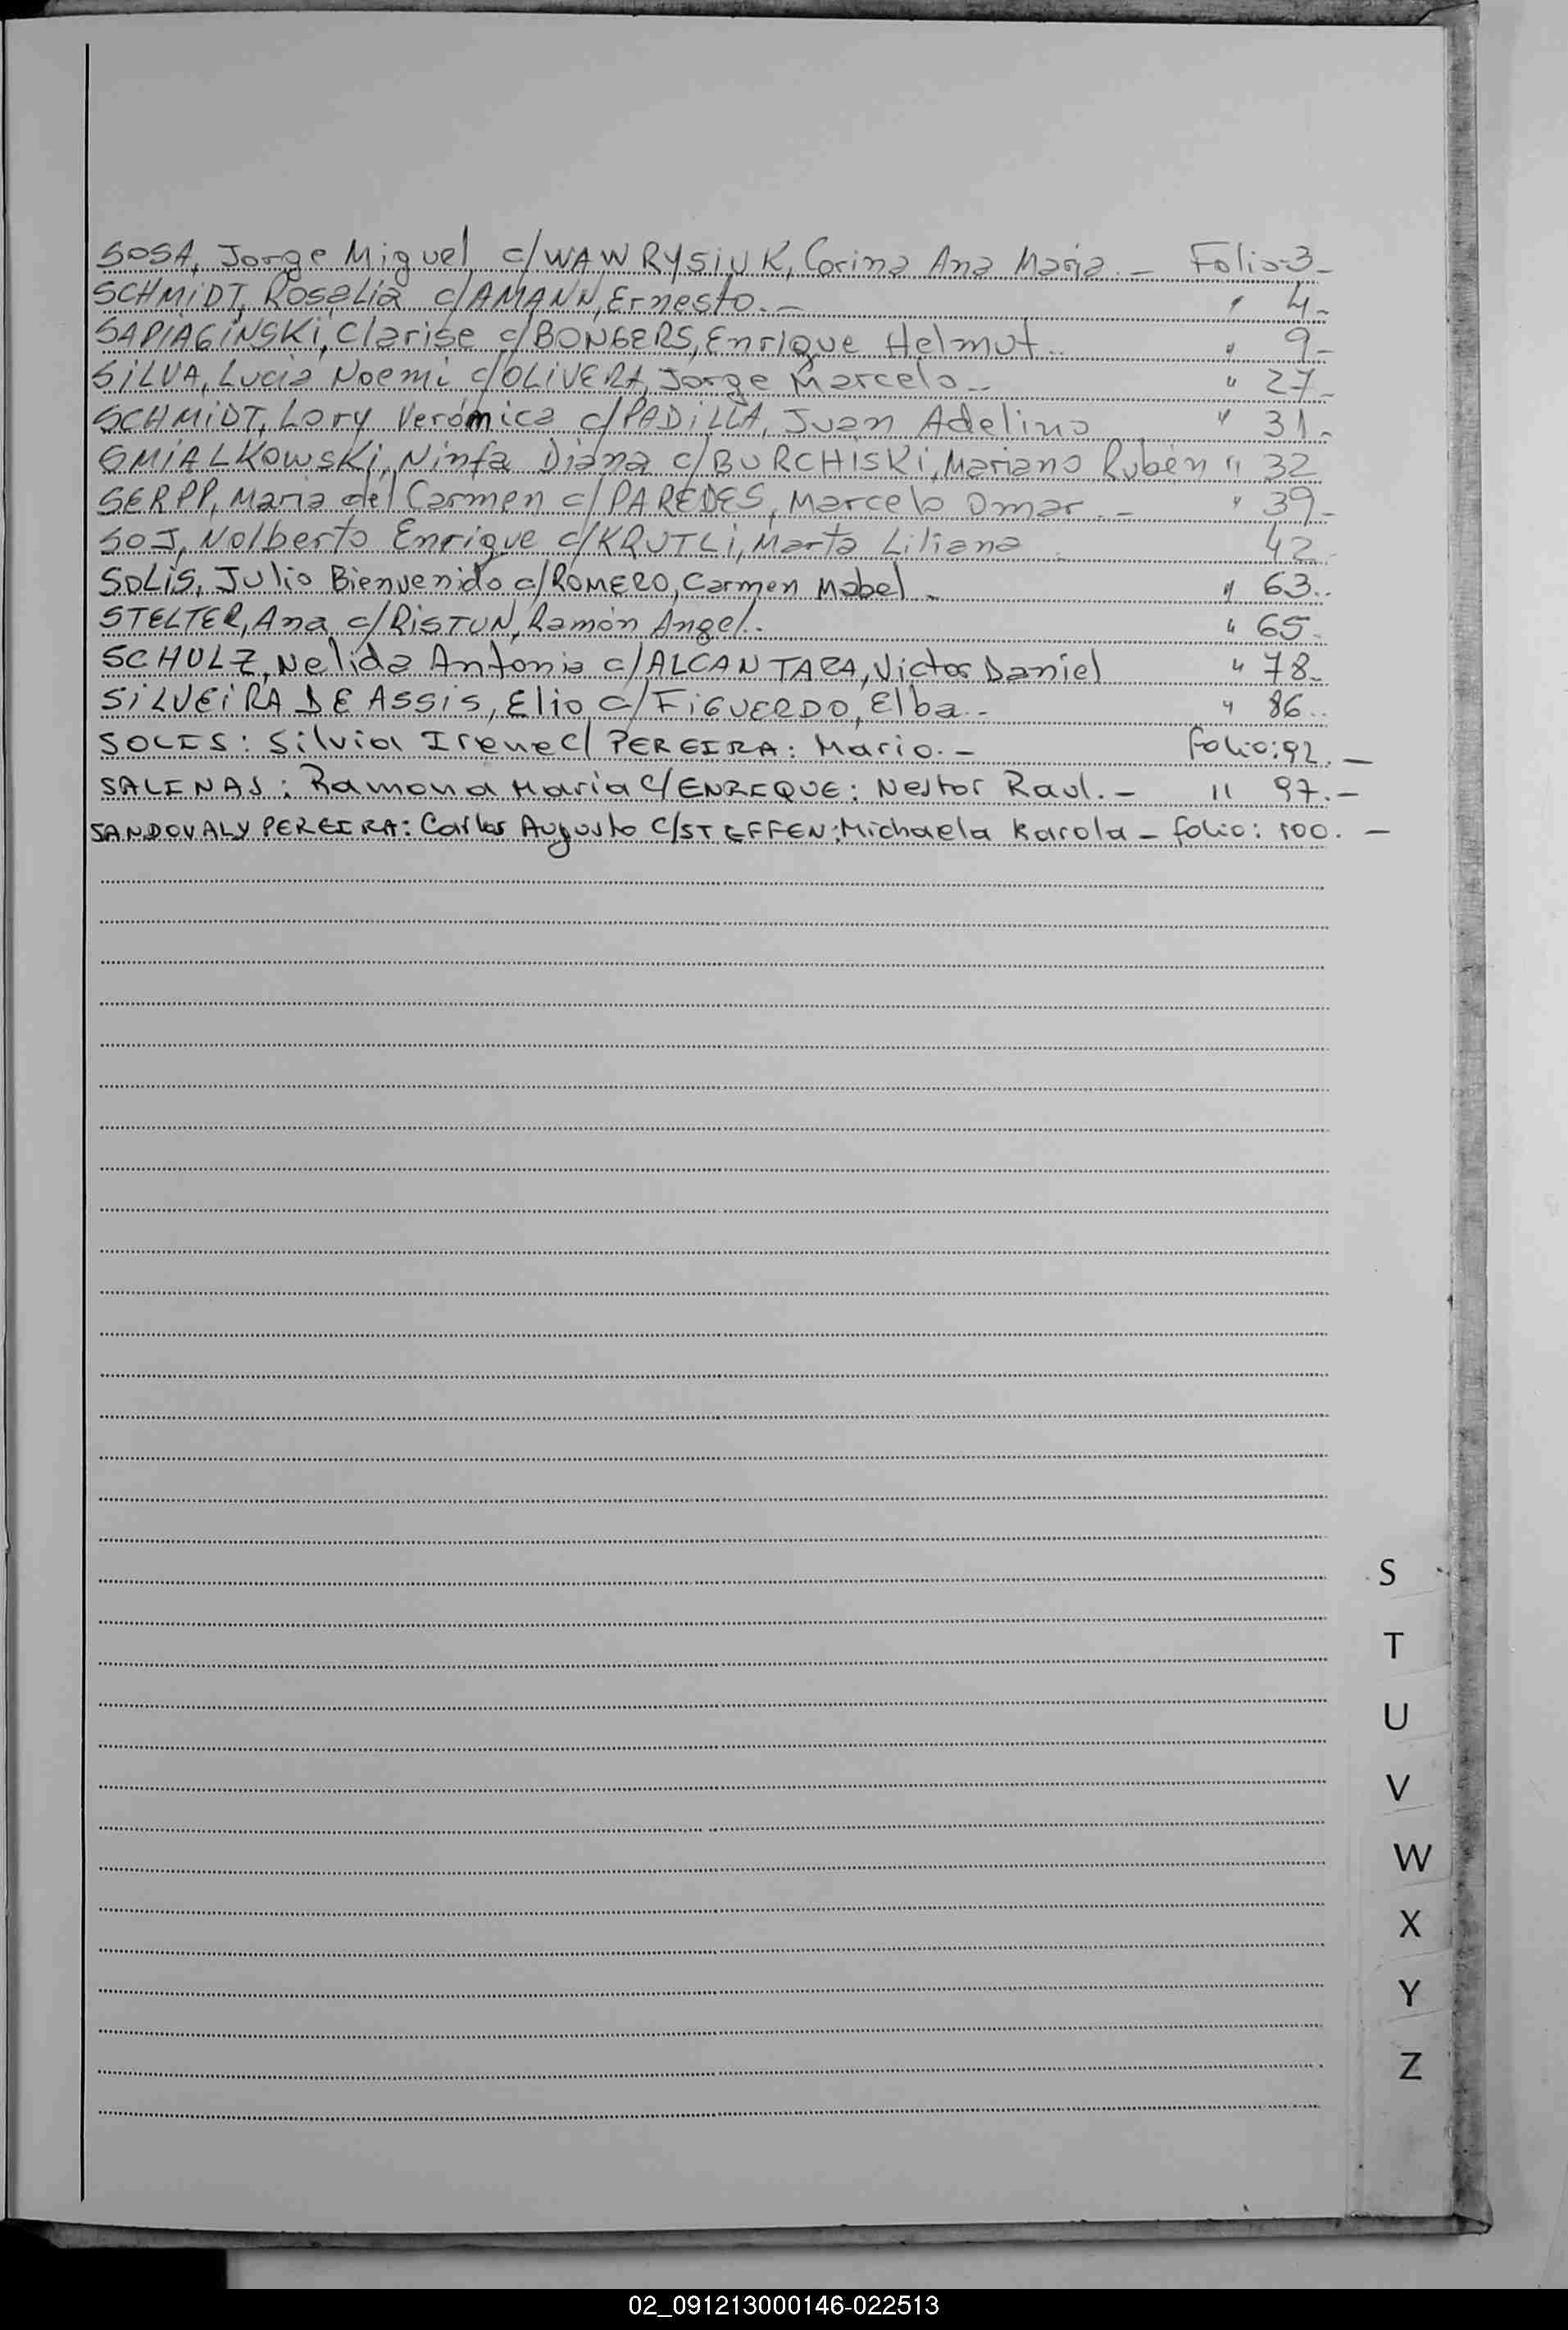 SOSA, Jorge Miguel c/WAWRYSIUK, Corina Ana Maria.- Folio:3-
SCHMIDT, Rosalia c/AMANN, Ernesto.- " 4-
SAPIAGINSKI, Clarise c/BONGERS, Enrique Helmut.. " 9-
SILVA, Lucia Noemi c/OLIVERA, Jorge Marcelo.- " 27-
SCHMIDT, Lory Verónica c/PADILLA, Juan Adelino " 31-
SMIALKOWSKI, Ninfa Diana c/BURCHISKI, Mariano Rubén " 32
SERPP, Maria del Carmen c/PAREDES, Marcelo Omar.- " 39-
SOJ, Nolberto Enrique c/KRUTLI, Marta Liliana 42-
SOLIS, Julio Bienvenido c/ROMERO, Carmen Mabel.- " 63..
STELTER, Ana c/RISTUN, Ramón Angel.- " 65.
SCHULZ, Nelida Antonia c/ALCANTARA, Victor Daniel " 78-
SILVEIRA DE ASSIS, Elio c/FIGUERDO, Elba.- " 86..
SOLIS: Silvia Irene C/PEREIRA: Mario.- folio:92.-
SALINAS: Ramona Maria C/ENRIQUE: Nestor Raul.- " 97.-
SANDOVAL Y PEREIRA: Carlos Augusto C/STEFFEN: Michaela Karola - folio: 100.-
S
T
U
V
W
X
Y
Z
02_091213000146-022513